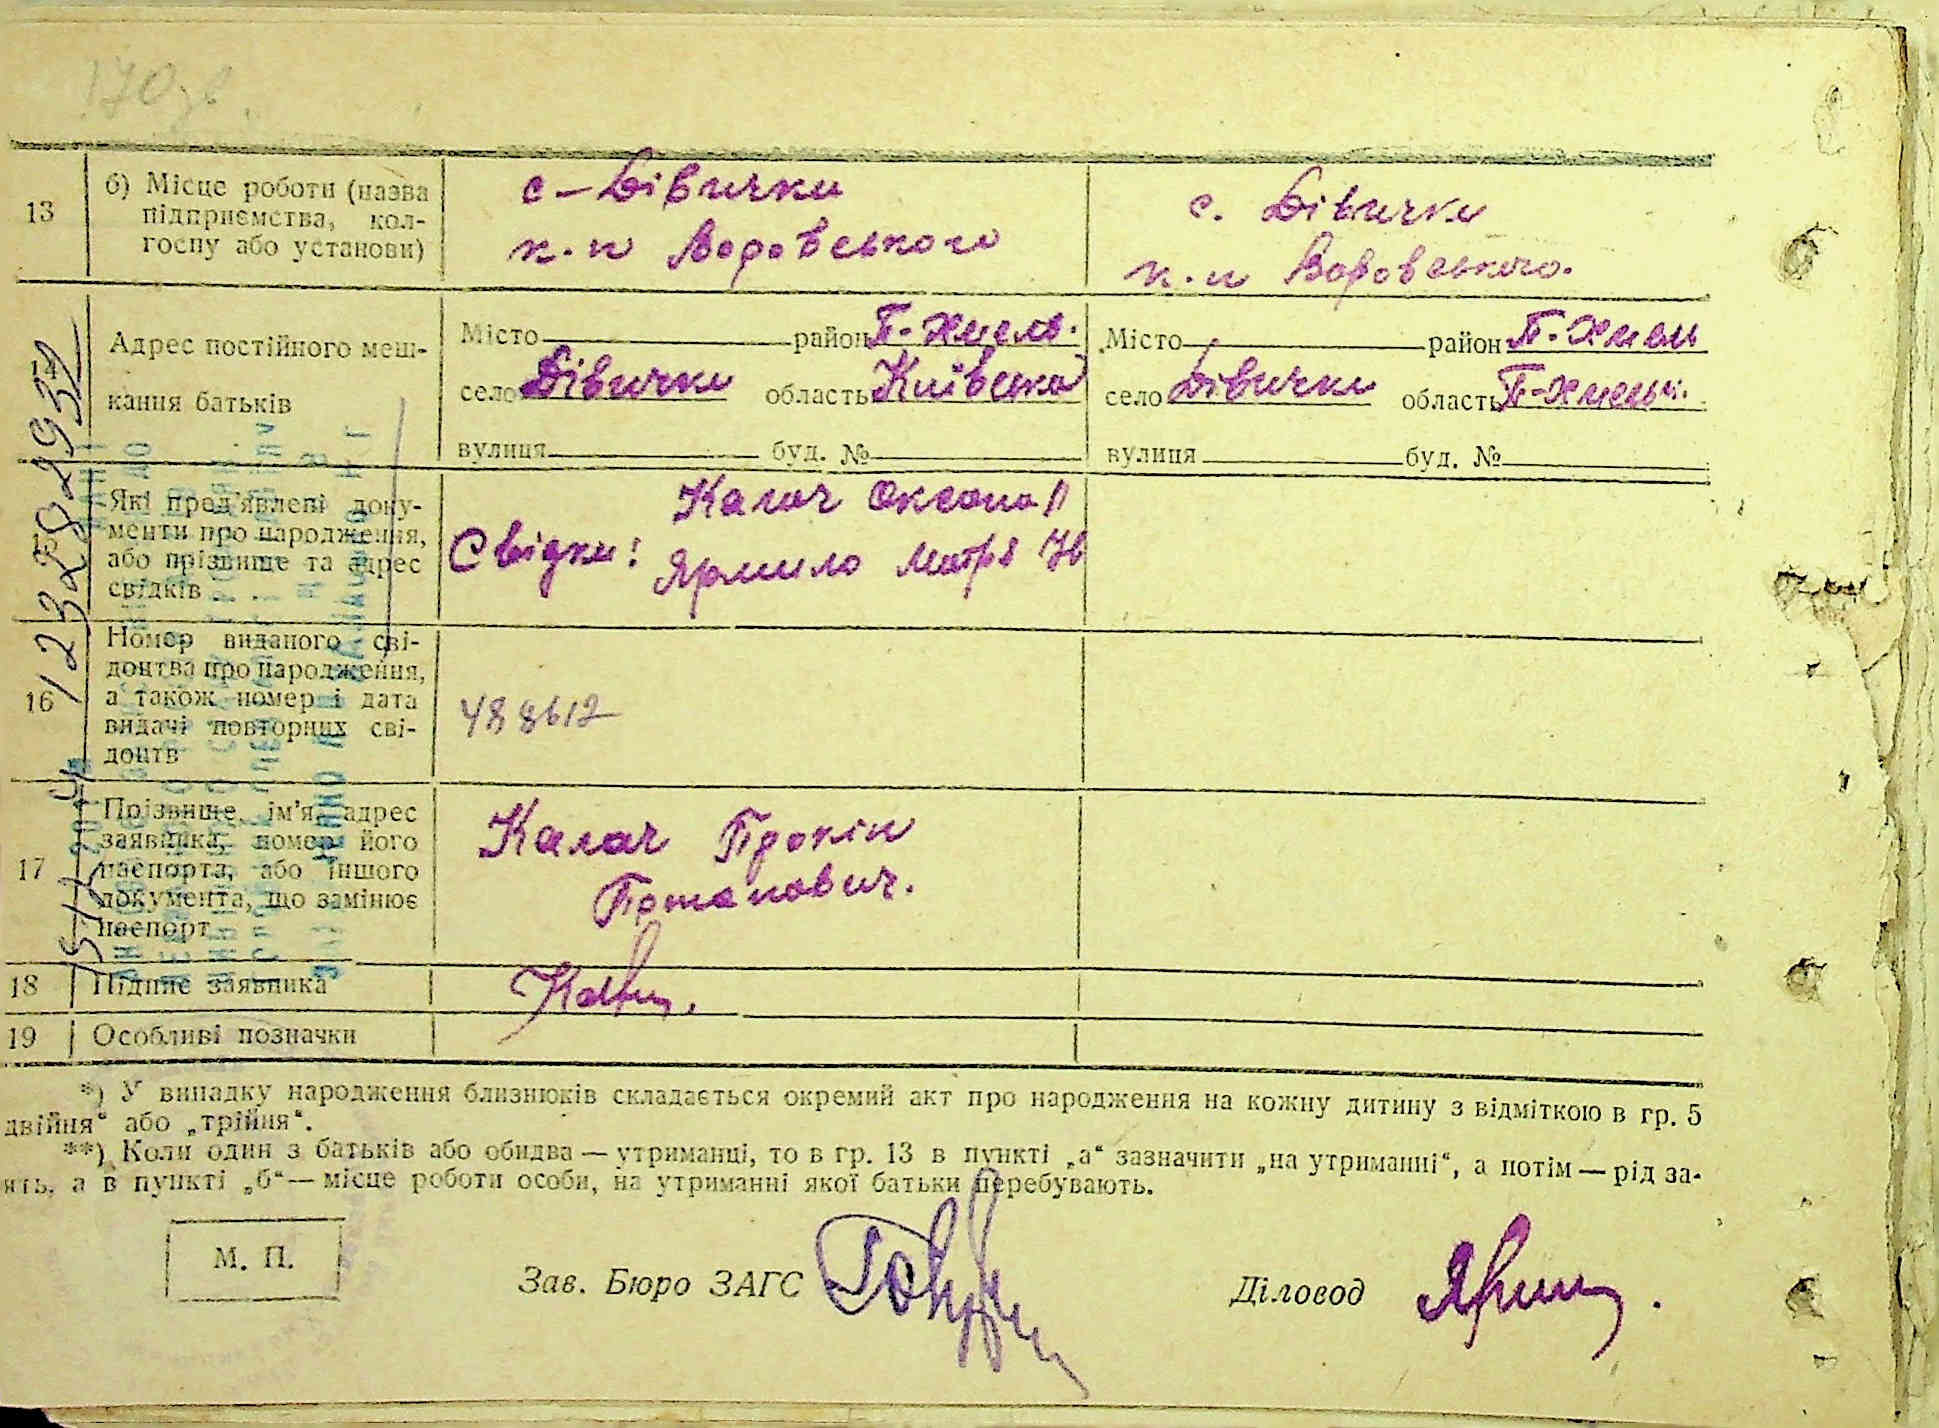 170 зв.
13
б) Місце роботи (назва
підприємства, кол-
госпу або установи)
с - Дівички
к.и Воровського
с. Дівички
к.и Воровського.
Адрес постійного меш-
кання батьків
Місто район П-Хмель.
село Дівички область Київська
вулиця буд. №
Місто район П.Хмель
село Дівички область П-Хмельн.
вулиця буд. №
Які пред'явлені доку-
менти про народження,
або прізвище та адрес
свідків
Калач Оксана
Свідки: Ярмило Мотря Ів
16
Номер виданого сві-
доцтва про народження,
а також номер і дата
видачі повторних сві-
доцтв
488612
17
Прізвище, ім'я, адрес
заявника, номер його
паспорта, або іншого
документа, що замінює
паспорт
Калач Прокіп
Потапович.
18
Підпис заявника
19
Особливі позначки
*) У випадку народження близнюків складається окремий акт про народження на кожну дитину з відміткою в гр. 5
двійня“ або „трійня“.
**) Коли один з батьків або обидва — утриманці, то в гр. 13 в пункті „а“ зазначити „на утриманні“, а потім — рід за-
ять, а в пункті „б“ — місце роботи особи, на утриманні якої батьки перебувають.
М. П.
Зав. Бюро ЗАГС
Діловод